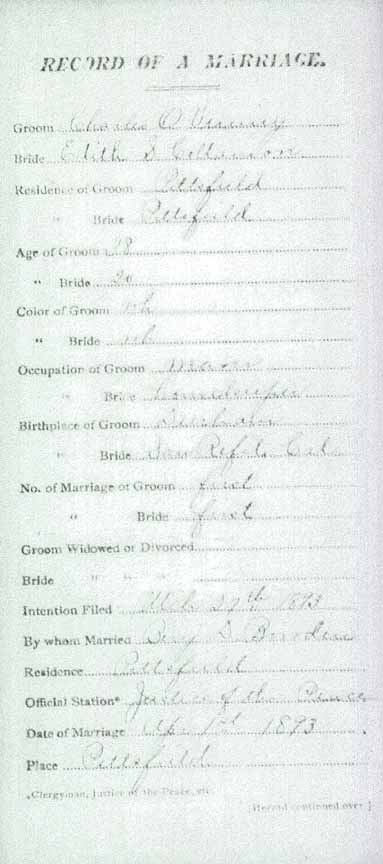 RECORD OF A MARRIAGE.
Groom Charles O
Bride Edith S Collinson
Residence of Groom Pittsfield
" Bride Pittsfield
Age of Groom 28
" Bride 20
Color of Groom wh
" Bride wh
Occupation of Groom Mason
" Bride Housekeeper
Birthplace of Groom Durham
" Bride San Cal
No. of Marriage of Groom first
" Bride first
Groom Widowed or Divorced
Bride " " "
Intention Filed Mch 27th 1893
By whom Married Benj S
Residence Pittsfield
Official Station* Justice of the Peace
Date of Marriage Apr 1st 1893
Place Pittsfield
*Clergyman, Justice of the Peace, etc.
[Record continued over]